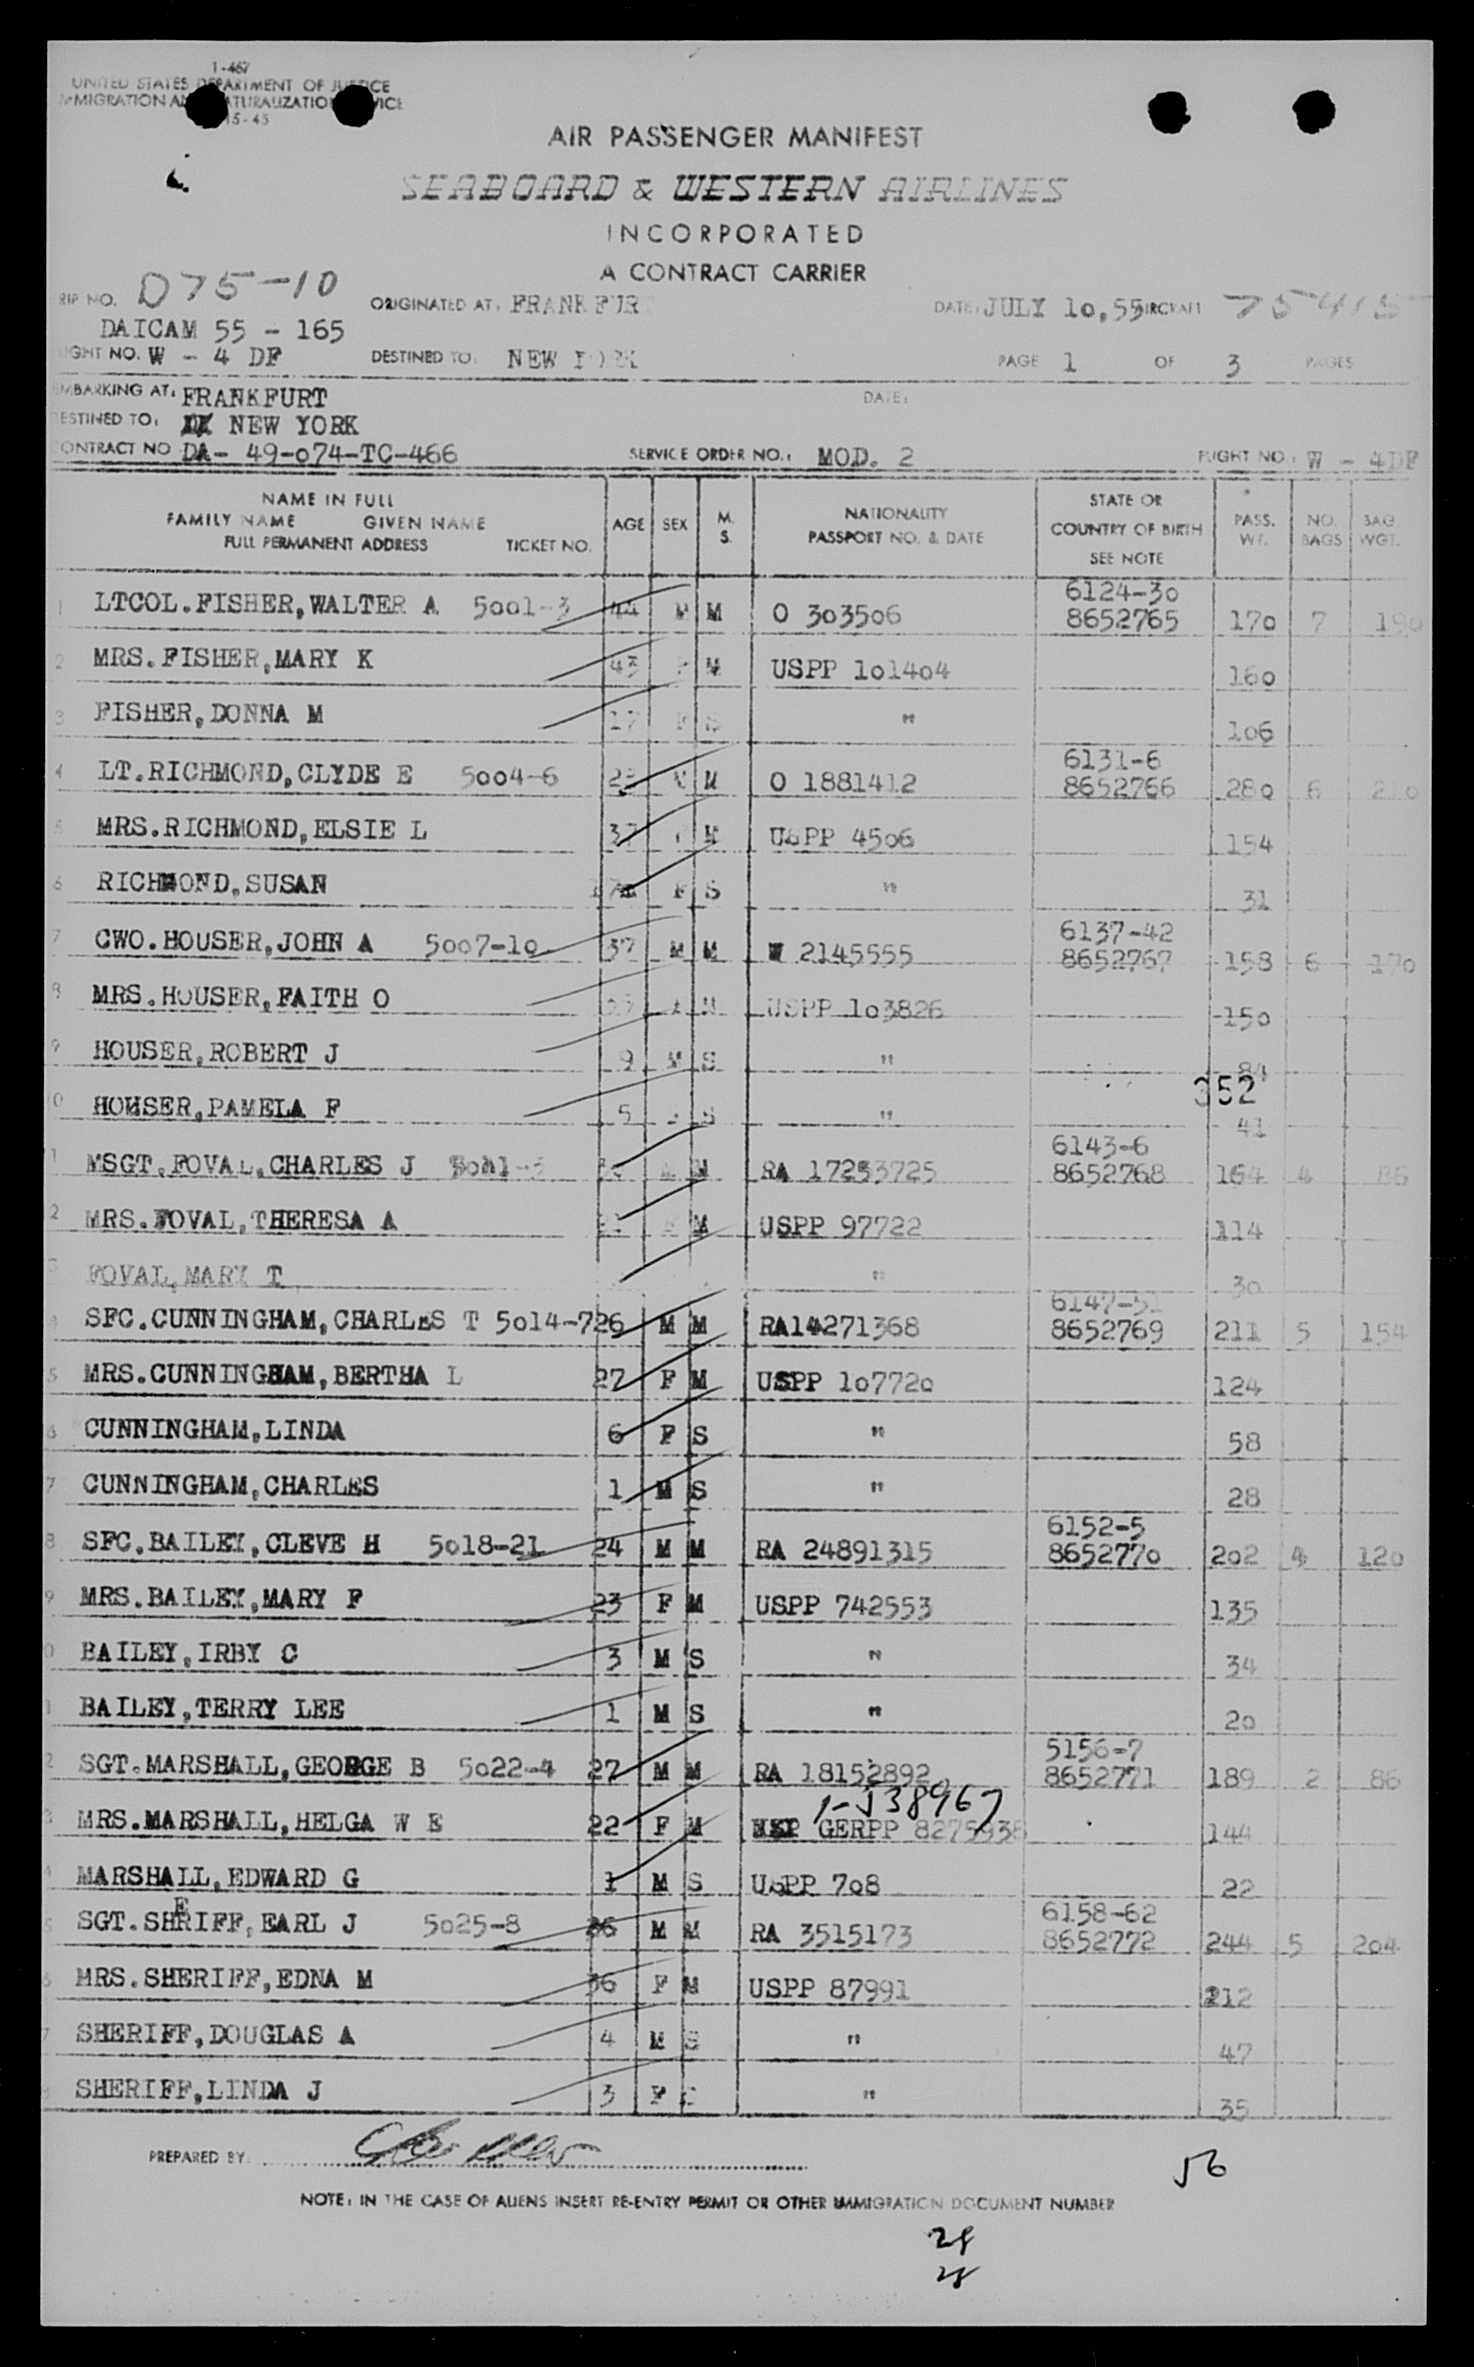 1-467
UNITED STATES DEPARTMENT OF JUSTICE
IMMIGRATION AND NATURALIZATION SERVICE
15-45
AIR PASSENGER MANIFEST
SEABOARD & WESTERN AIRLINES
INCORPORATED
A CONTRACT CARRIER
RIP NO. D75-10 ORIGINATED AT: FRANKFUR DATE: JULY 10,55 IRCRAFT
DAICAM 55 - 165
IGHT NO. W - 4 DF DESTINED TO: NEW YORK PAGE 1 OF 3 PAGES
EMBARKING AT: FRANKFURT DATE:
DESTINED TO: NEW YORK
CONTRACT NO DA- 49-074-TC-466 SERVICE ORDER NO.: MOD. 2 FLIGHT NO: W - 4DF
NAME IN FULL
FAMILY NAME GIVEN NAME
FULL PERMANENT ADDRESS TICKET NO. AGE SEX M. S. NATIONALITY PASSPORT NO. & DATE STATE OR COUNTRY OF BIRTH SEE NOTE PASS. WT. NO. BAGS BAG WGT.
6124-30
1 LTCOL.FISHER,WALTER A 5001-3 44 M M O 303506 8652765 170 7 190
2 MRS.FISHER,MARY K 43 F M USPP 101404 160
3 FISHER,DONNA M 17 F S " 106
6131-6
4 LT.RICHMOND,CLYDE E 5004-6 M M O 1881412 8652766 280 6 210
5 MRS.RICHMOND,ELSIE L 37 M USPP 4506 154
6 RICHMOND,SUSAN F S " 31
6137-42
7 CWO.HOUSER,JOHN A 5007-10 37 M M W 2145555 8652767 158 6 170
8 MRS.HOUSER,FAITH O M USPP 103826 150
9 HOUSER,ROBERT J 9 M S " 84
352
0 HOUSER,PAMELA F 5 S " 41
6143-6
1 MSGT.FOVAL,CHARLES J M M RA 17253725 8652768 164 4
2 MRS.FOVAL,THERESA A F M USPP 97722 114
FOVAL,MARY T " 30
SFC.CUNNINGHAM,CHARLES T 5014-7 26 M M RA14271368 8652769 211 5 154
5 MRS.CUNNINGHAM,BERTHA L 27 F M USPP 107720 124
6 CUNNINGHAM,LINDA 6 F S " 58
7 CUNNINGHAM,CHARLES 1 M S " 28
6152-5
8 SFC.BAILEY,CLEVE H 5018-21 24 M M RA 24891315 8652770 202 4 120
9 MRS.BAILEY,MARY F 23 F M USPP 742553 135
0 BAILEY,IRBY C 3 M S " 34
1 BAILEY,TERRY LEE 1 M S " 20
5156-7
2 SGT.MARSHALL,GEORGE B 5022-4 27 M M RA 18152892 8652771 189 2 86
1-J38967
3 MRS.MARSHALL,HELGA W E 22 F M GERPP 8275938 144
4 MARSHALL,EDWARD G 1 M S USPP 708 22
E 6158-62
5 SGT.SHRIFF,EARL J 5025-8 36 M M RA 3515173 8652772 244 5 204
6 MRS.SHERIFF,EDNA M 36 F M USPP 87991 212
7 SHERIFF,DOUGLAS A 4 M S " 47
SHERIFF,LINDA J 3 F S " 35
PREPARED BY
56
NOTE: IN THE CASE OF ALIENS INSERT RE-ENTRY PERMIT OR OTHER IMMIGRATION DOCUMENT NUMBER
28
28